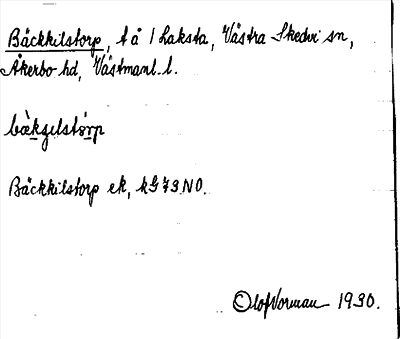 Bäckkilstorp, t å 1 Laksta, Västra Skedvi sn,
Åkerbo hd, Västmanl. l.
bàkgılstórp
Bäckkilstorp ek, kG 73 NO.
Olof Norman 1930.